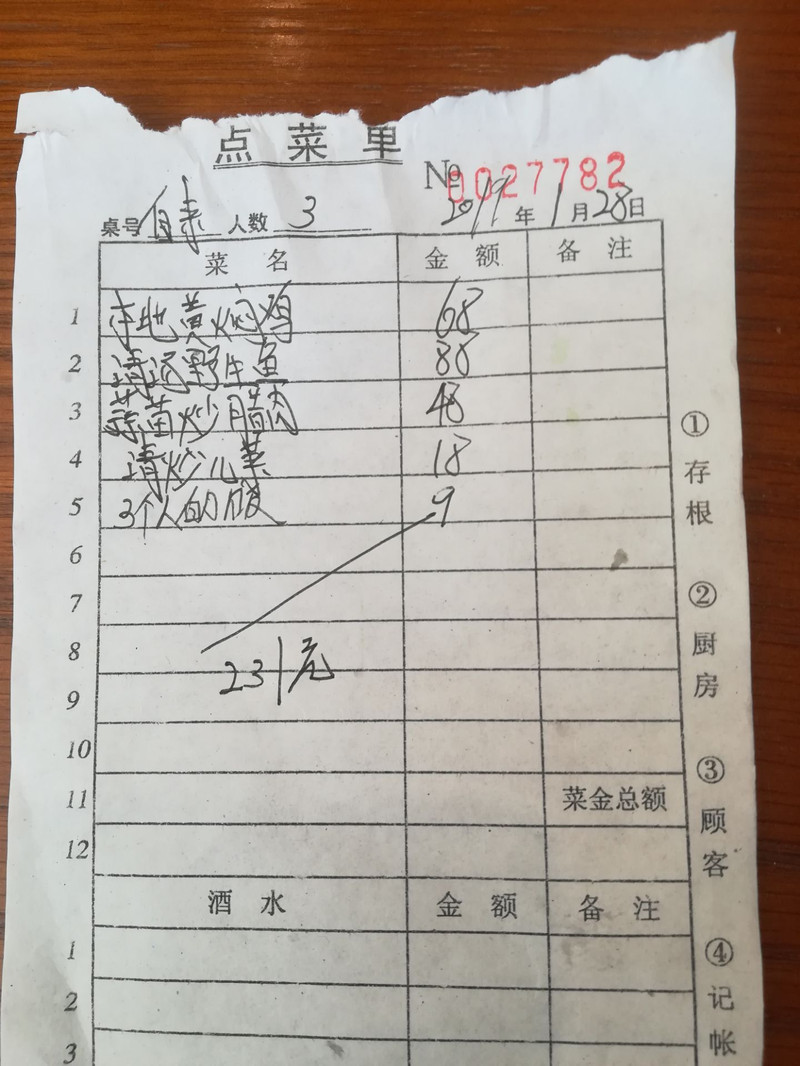 点菜单
№ 0027782
桌号 健康 人数 3 2019年1月28日
菜名 金额 备注
1 本地黄焖鸡 68
2 清汤野生鱼 88
3 茶菌炒腊肉 48
4 清炒儿菜 18
5 3个人的饭 9
6
7
8
231元
9
10
11 菜金总额
12
酒水 金额 备注
1
2
3
①存根
②厨房
③顾客
④记帐